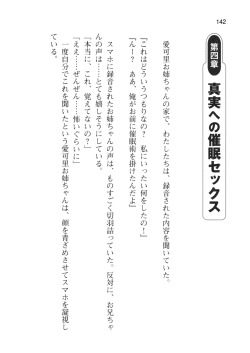 142
第四章
真実への催眠セックス
愛可里お姉ちゃんの家で、わたしたちは、録音された内容を聞いていた。
「これはどういうつもりなの？　私にいったい何をしたの！」
「ん〜？　ああ、俺がお前に催眠術を掛けたんだよ」
スマホに録音されたお姉ちゃんの声は、ものすごく切羽詰っていた。反対に、お兄ちゃ
んの声は……とても嬉しそうにしている。
「本当に、これ、覚えてないの？」
「ええ……ぜんぜん……怖いぐらいに」
一度自分でこれを聞いたという愛可里お姉ちゃんは、顔を青ざめさせてスマホを凝視し
ている。